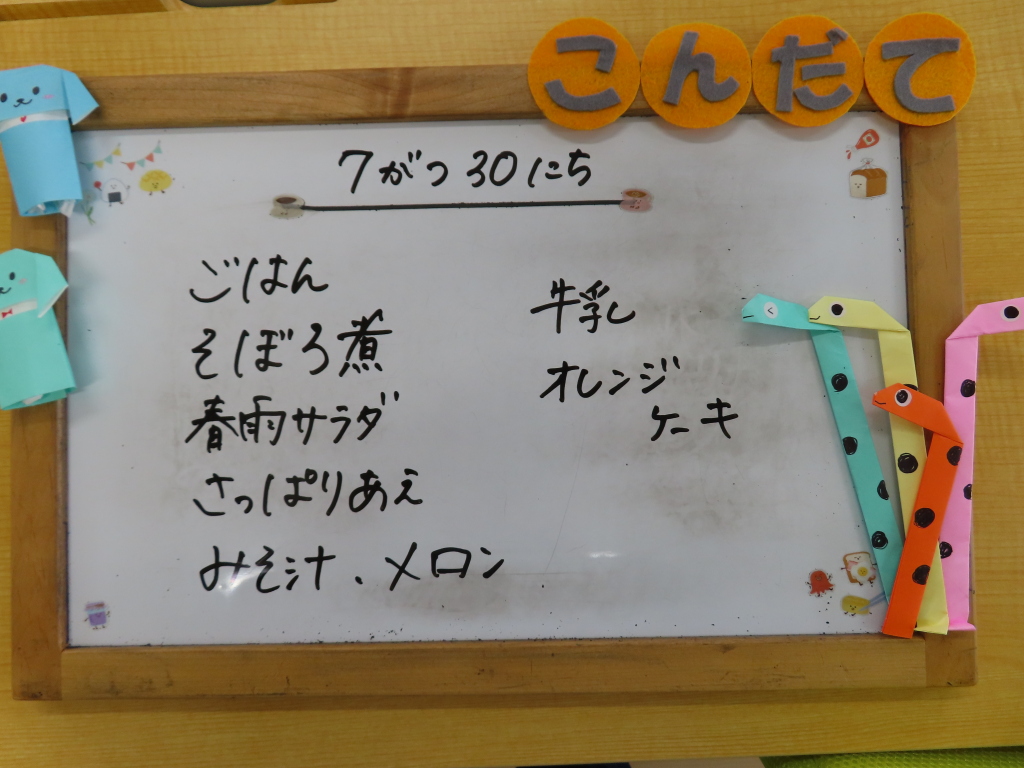 こんだて
7がつ30にち
ごはん
そぼろ煮
春雨サラダ
さっぱりあえ
みそ汁、メロン
牛乳
オレンジ
ケーキ